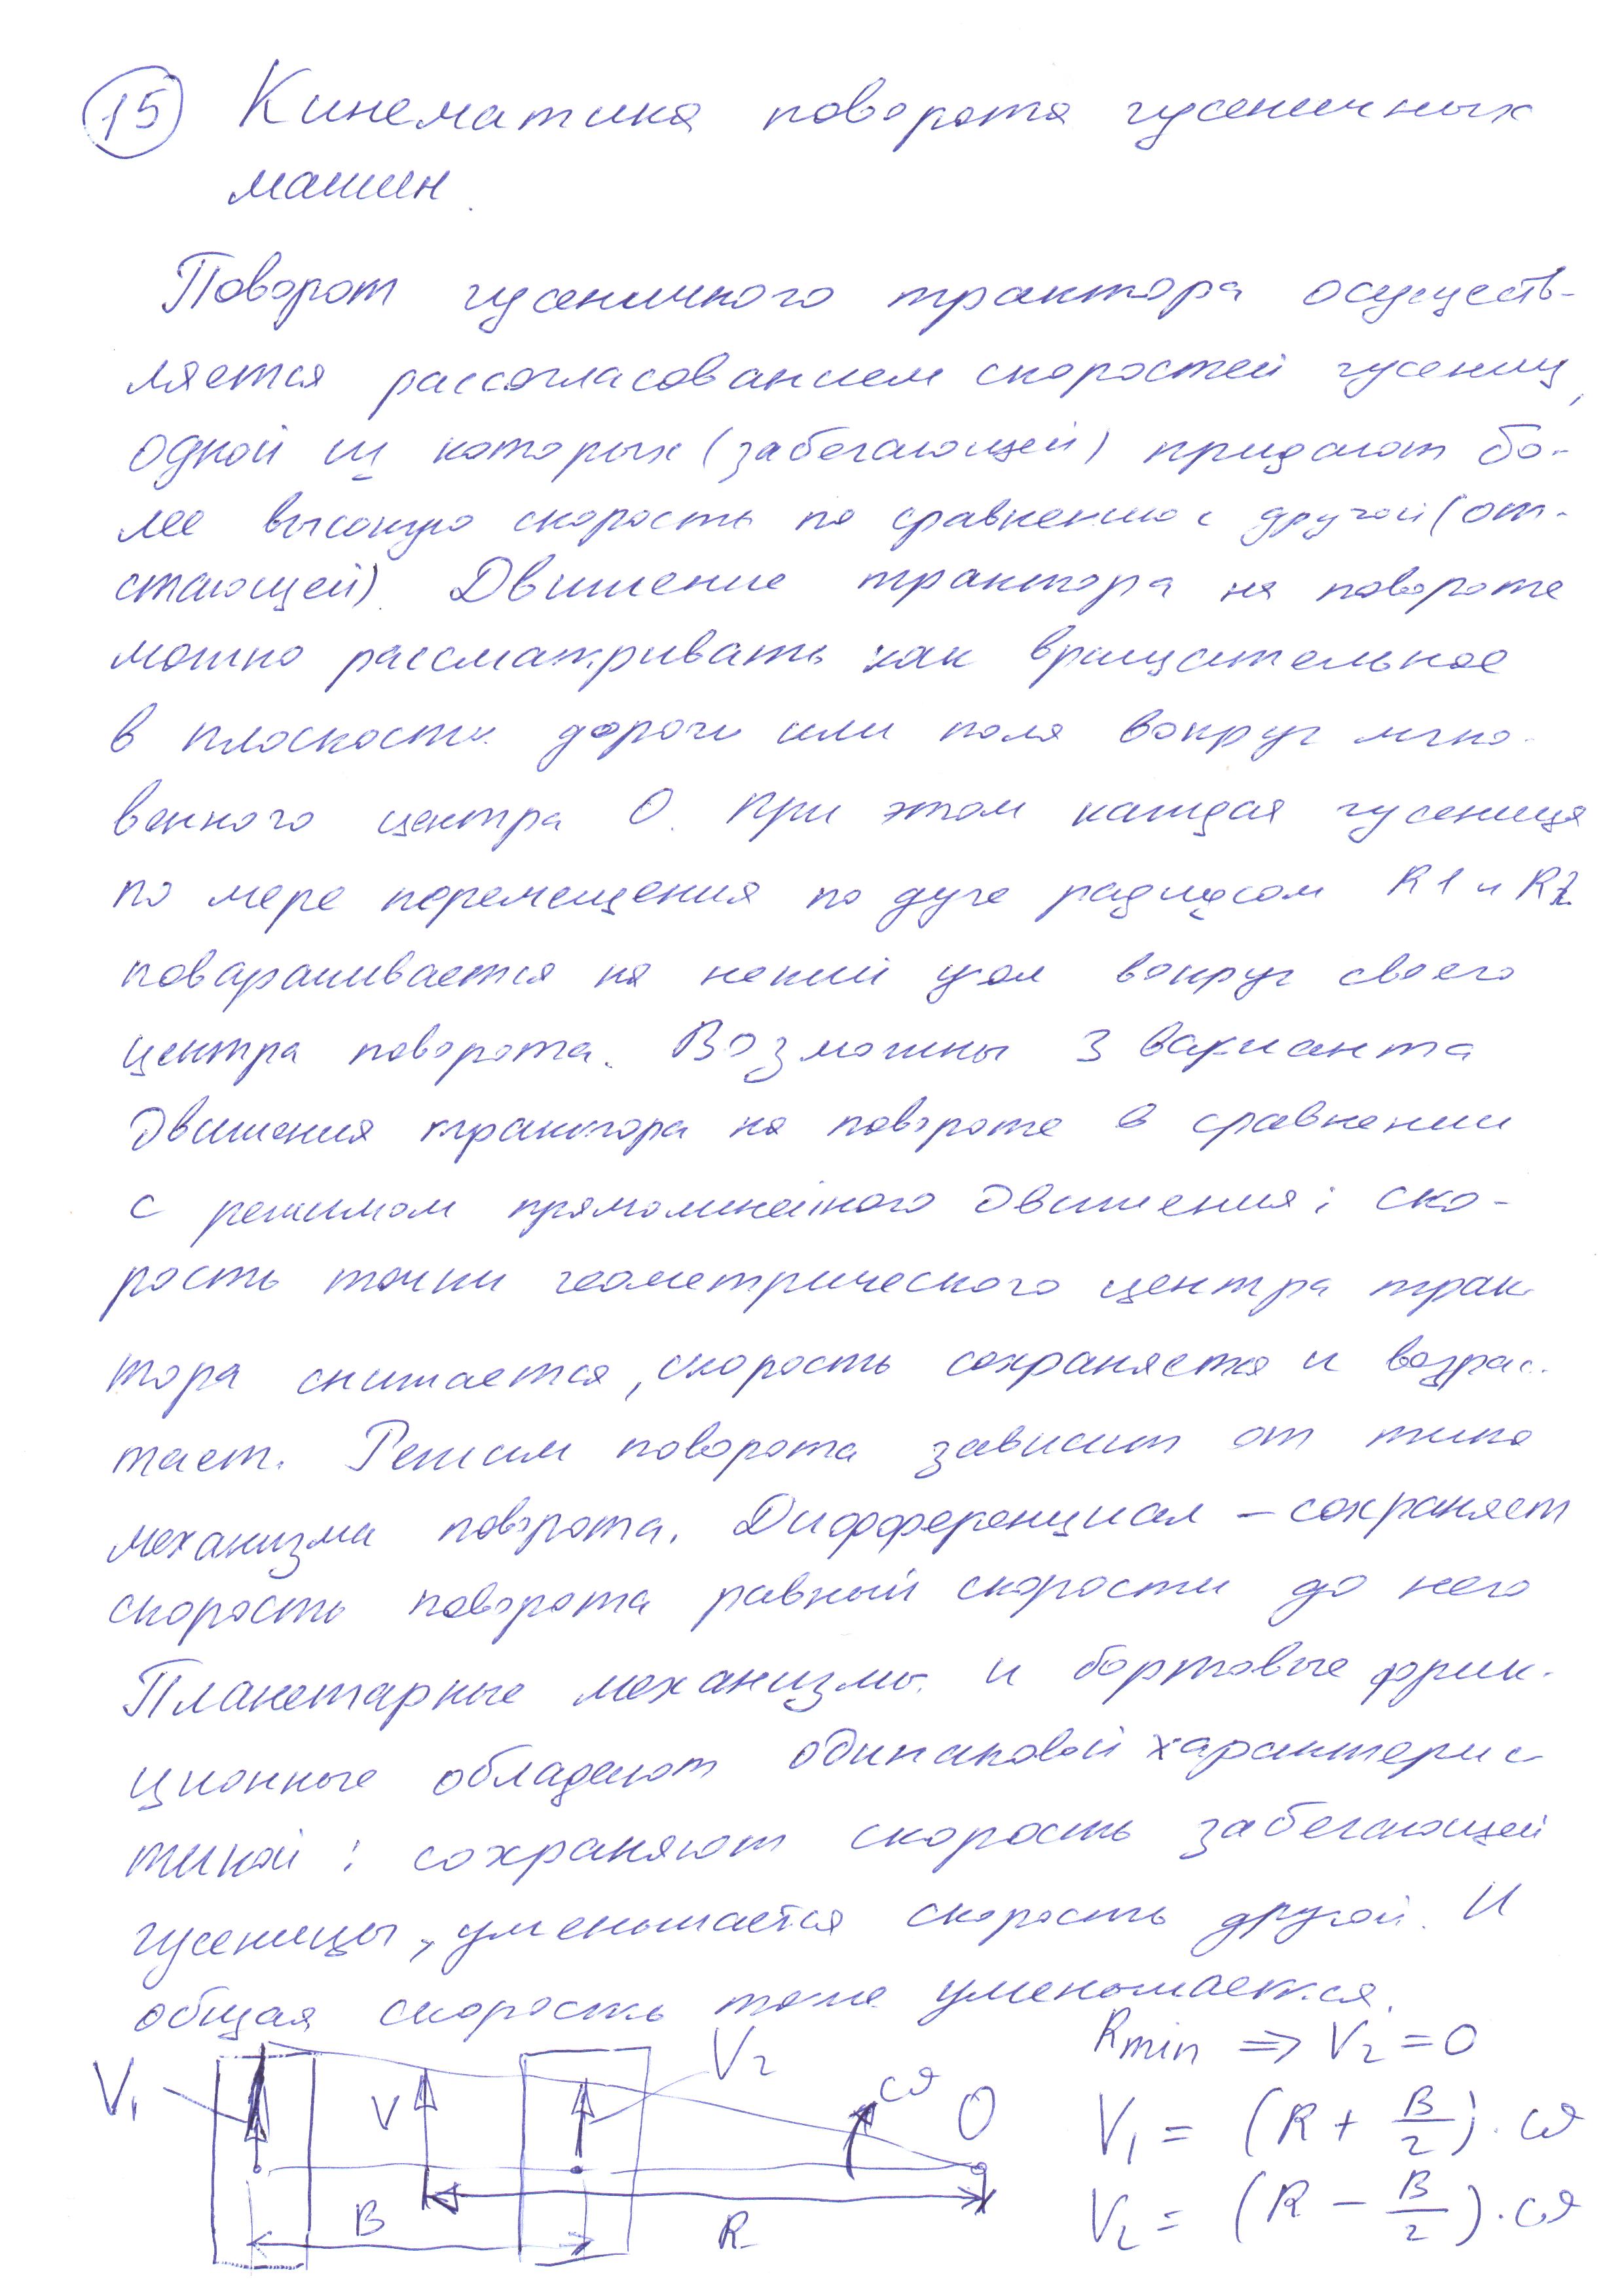 15 Кинематика поворота гусеничных
машин.
Поворот гусеничного трактора осуществ-
ляется рассогласованием скоростей гусениц,
одной из которых (забегающей) придают бо-
лее высокую скорость по сравнению с другой (от-
стающей). Движение трактора на повороте
можно рассматривать как вращательное
в плоскости дороги или поля вокруг мгно-
венного центра О. При этом каждая гусеница
по мере перемещения по дуге радиусом R1 и R2
поварачивается на некий угол вокруг своего
центра поворота. Возможны 3 варианта
движения трактора на повороте в сравнении
с режимом прямолинейного движения: ско-
рость точки геометрического центра трак-
тора снижается, скорость сохраняется и возрас-
тает. Режим поворота зависит от типа
механизма поворота. Дифференциал – сохраняет
скорость поворота равный скорости до него
Планетарные механизмы и бортовые фрик-
ционные обладают одинаковой характерис-
тикой: сохраняют скорость забегающей
гусеницы, уменьшается скорость другой. И
общая скорость тоже уменьшается.
Rmin => V2 = 0
V1 V V2 ω O
V1 = (R + B/2) · ω
B R
V2 = (R – B/2) · ω